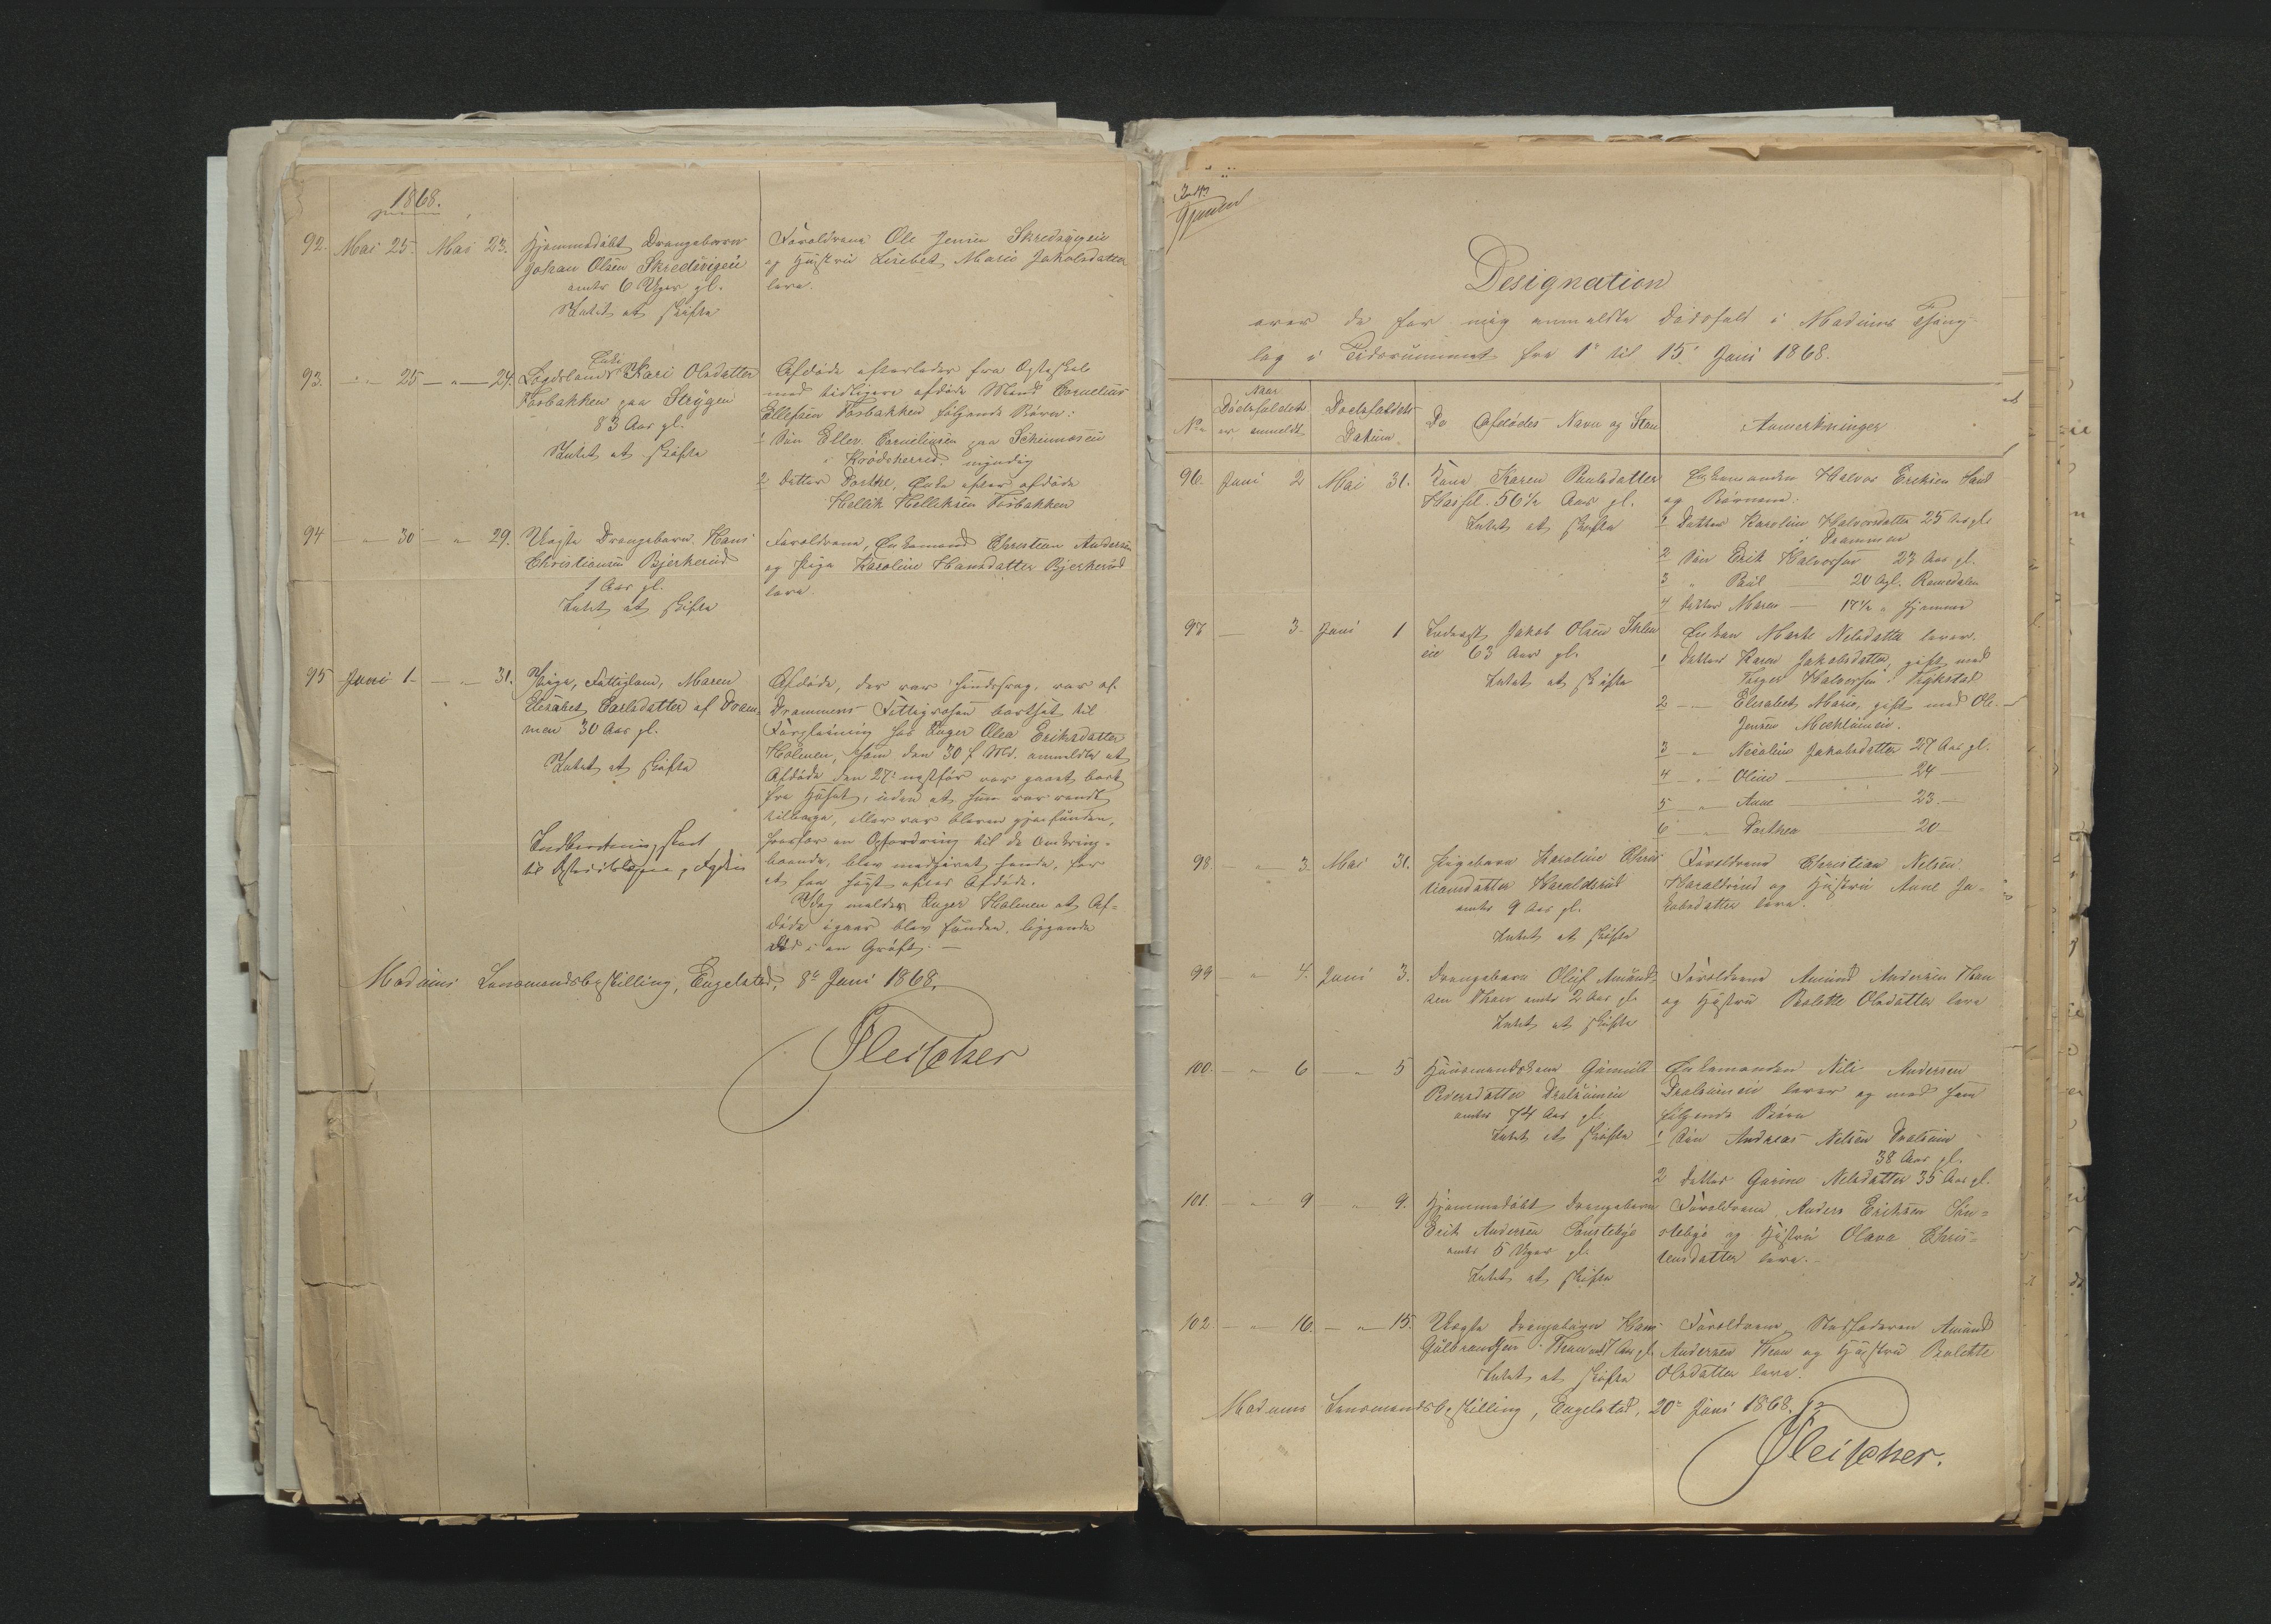 1868.
92. Mai 25. Mai 23. Hjemmedøbt Drengebarn
Johan Olsen Skredsvigeie
omtr 6 Uger gl.
Intet at skifte
Forældrene Ole Jensen Skredsvigeie
og Hustru Lisebet Marie Jakobsdatter
leve.
93. — " 25 — " — 24. Lægdslem Enke Kari Olsdatter
Fosbakken paa Strygen
83 Aar gl.
Intet at skifte
Afdøde efterlader fra Ægteskab
med tidligere afdøde Mand Cornelius
Ellefsen Fosbakken følgende Børn:
1 Søn Ellev Corneliusen paa
i Krødsherred, myndig
2 Datter Dorthe, Enke efter afdøde
Hellik Helliksen Fosbakken
94 — " 30 — " 29. Uægte Drengebarn Hans
Christiansen Bjerkerud
1 Aar gl.
Intet at skifte
Forældrene, Enkemand Christian Andersen
og Pige Karoline Hansdatter Bjerkerud
leve
95 Juni 1 — — " 31. Pige, Fattiglem, Maren
Elisabet Carlsdatter af Dram-
men 30 Aar gl.
Intet at skifte
Afdøde, der var sindssvag, var af
Drammens Fattigvæsen bortsat til
Forpleining hos Inger Olea Eriksdatter
Holmen, som den 30 f. Md. anmeldte at
Afdøde den 27 næstfør var gaaet bort
fra Huset, uden at hun var vendt
tilbage, eller var bleven gjenfunden,
hvorfor en Opfordring til de Omkring-
boende, blev medgivet hende, for
at faa søgt efter Afdøde.
Idag melder Inger Holmen at Af-
døde igaar blev funden, liggende
død i en Grøft. —
Indberetning
til
Modums Lensmandsbestilling, Engelstad, 8de Juni 1868.
Fleischer
Designation
over de for mig anmeldte Dødsfald i Modums Thing-
lag i Tidsrummet fra 1e til 15. Juni 1868.
No. Naar Dødsfaldet er anmeldt Dødsfaldets Datum. De Afdødes Navn og Stan Anmerkninger
96. Juni 2 Mai 31. Kone Karen Paulsdatter
Hassel. 56½ Aar gl.
Intet at skifte
Enkemanden Halvor Eriksen
og Børnene:
1 Datter Karoline Halvorsdatter 25 Aar gl.
i Drammen
2 Søn Erik Halvorsen 23 Aar gl.
3 " Paul — 20 A gl. Ramsdalen
4 Datter Maren — 17½ " hjemme
97 — 3. Juni 1 Inderst Jakob Olsen Ihlen
eie 63 Aar gl.
Intet at skifte
Enken Marte Nelsdatter lever.
1 Datter Karen Jakobsdatter, gift med
Halvorsen i
2 — Elisabet Marie, gift med Ole
Jensen
3 — " Nicoline Jakobsdatter 27 Aar gl.
4 — " Oline — 24 —
5 — " Anne — 23 —
6 — " Dorthea — 20
98. — " 3. Mai 31. Pigebarn Karoline Chris-
tiansdatter Haraldsrud
omtr 9 Aar gl.
Intet at skifte
Forældrene Christian Nelsen
Haraldsrud og Hustru Anne Ja-
kobsdatter leve.
99 — " 4. Juni 3. Drengebarn Oluf Amund-
sen omtr 2 Aar gl.
Intet at skifte
Forældrene Amund Andersen
og Hustru Bolette Olsdatter leve
100. — " 6 — " 5 Huusmandskone Gunild
Pedersdatter
omtr 74 Aar gl.
Intet at skifte
Enkemanden Nils Andersen
lever og med ham
følgende Børn
1 Søn Andreas Nelsen
38 Aar gl.
2 Datter Gurine Nelsdatter 35 Aar gl.
101. — " 9 — " 9. Hjemmedøbt Drengebarn
Erik Andersen Sønstebye
omtr 5 Uger gl.
Intet at skifte
Forældrene Anders Eriksen Søn-
stebye og Hustru Olava Chris-
tensdatter leve.
102. — " 16. — " 15. Uægte Drengebarn Hans
Gulbrandsen
Intet at skifte
Forældrene, Amund
Andersen og Hustru Bolette
Olsdatter leve.
Modums Lensmandsbestilling, Engelstad, 20de Juni 1868.
Fleischer.